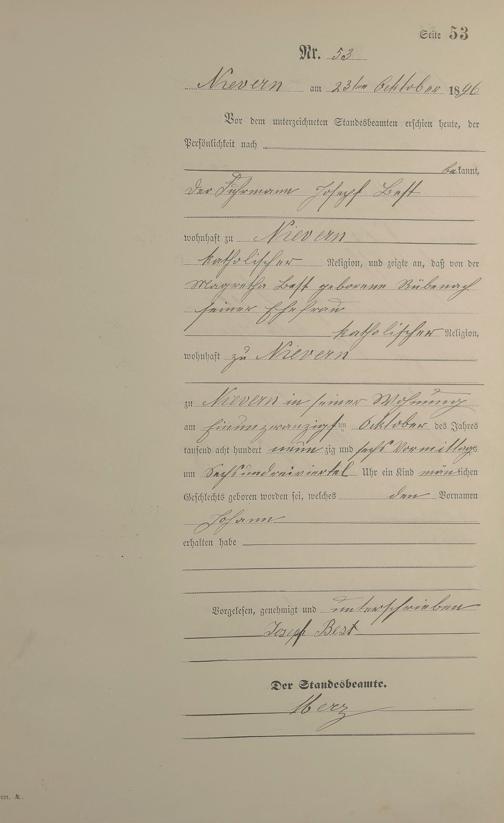 Seite 53
Nr. 53
Nievern am 23ten Oktober 1896
Vor dem unterzeichneten Standesbeamten erschien heute, der
Persönlichkeit nach
bekannt,
der Fuhrmann Joseph Best
wohnhaft zu Nievern
katholischer Religion, und zeigte an, daß von der
Magretha Best geborene Rübenach
seiner Ehefrau
katholischer Religion,
wohnhaft zu Nievern
zu Nievern in seiner Wohnung
am Einunzwanzigsten Oktober des Jahres
tausend acht hundert neunzig und sechs Vormittags
um Sechsunddreiviertel Uhr ein Kind männlichen
Geschlechts geboren worden sei, welches den Vornamen
Johann
erhalten habe
Vorgelesen, genehmigt und unterschrieben
Joseph Best
Der Standesbeamte.
Merz